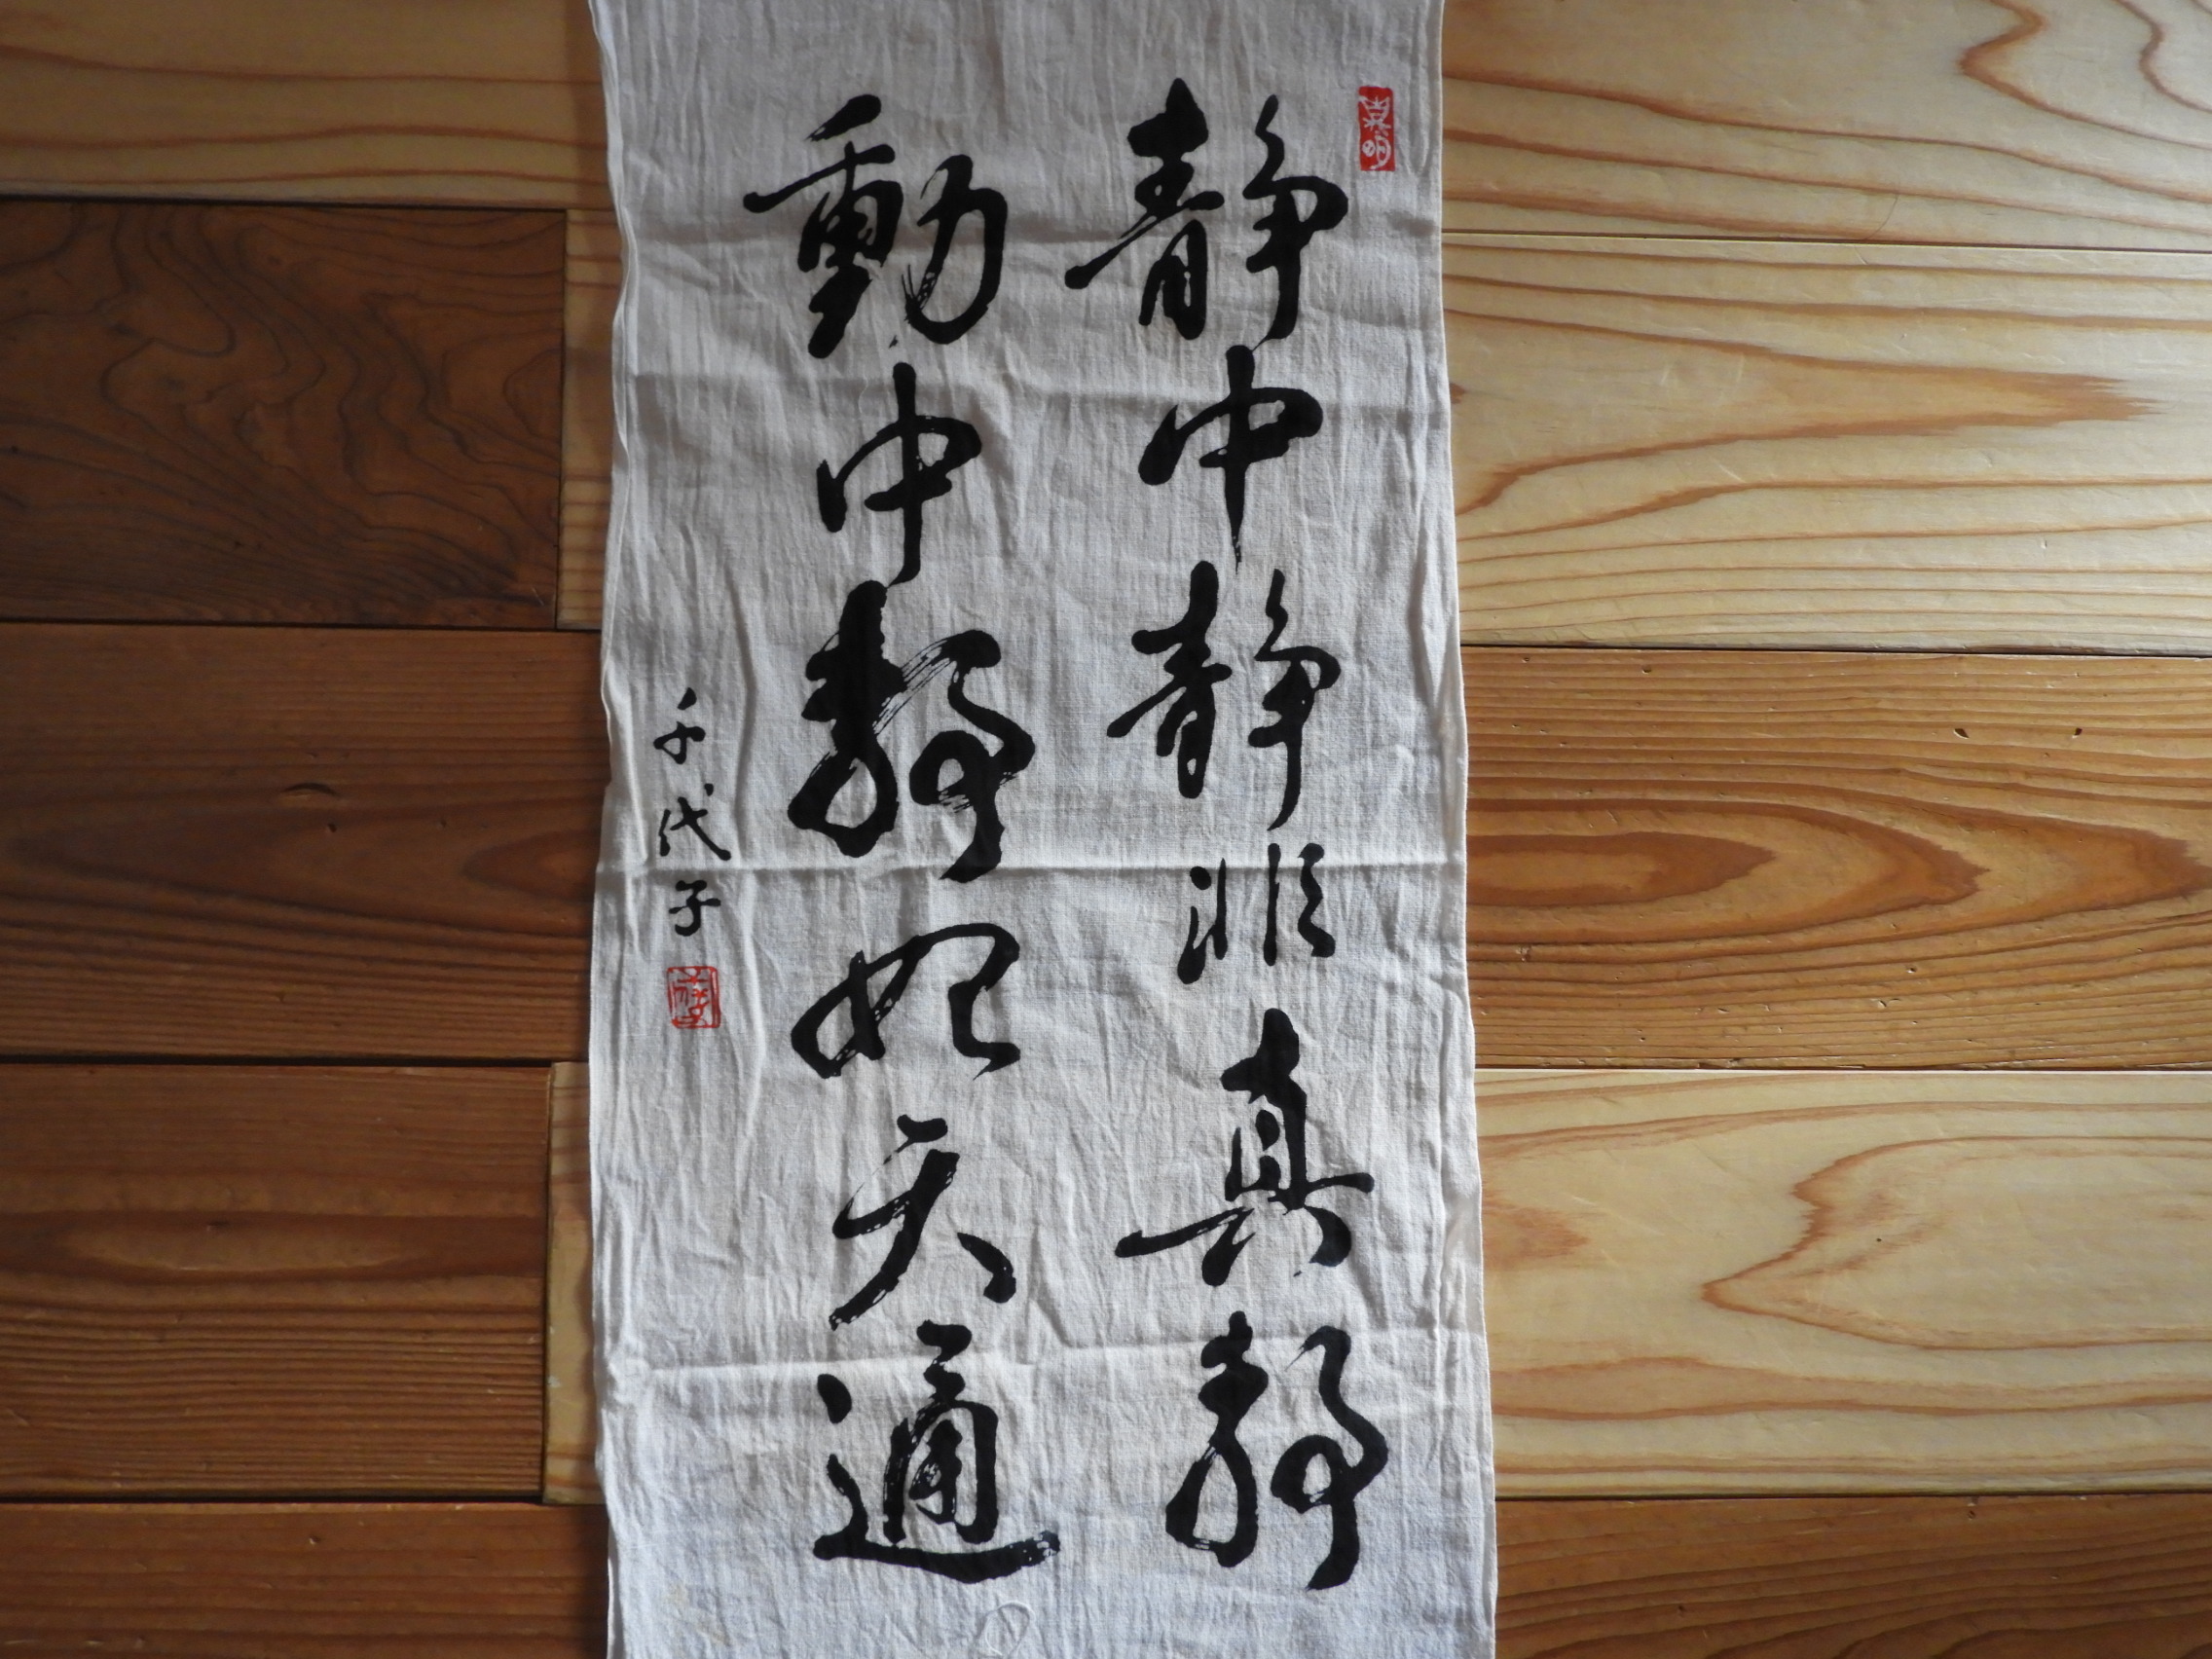 静中静非真静
動中静始天通
千代子